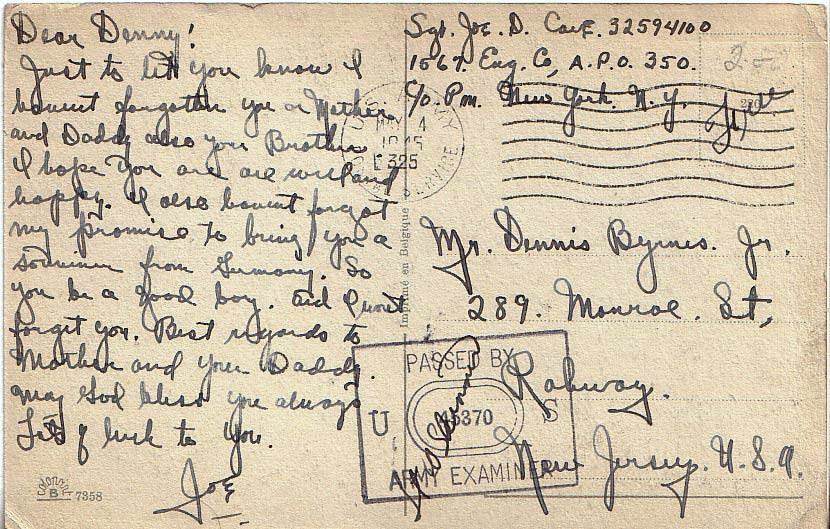 Dear Denny!
Just to let you know I
havent forgotten you or Mother
and Daddy also your Brother
I hope you are are well and
happy. I also havent forgot
my promise to bring you a
souvenir from Germany. So
you be a good boy. and I wont
forget you. Best regards to
Mother and your Daddy.
May God bless you always
Lots of luck to you.
Joe
B 7358
Imprimé en Belgique
Sgt. Joe. D. Cave. 32594100
1567. Eng. Co, A.P.O. 350.
c/o. P.m. New York. N.Y.
Free
U.S. ARMY
MAY 4
1945
325
POSTAL SERVICE
Mr. Dennis Byrnes. Jr.
289. Monroe. St,
Rahway.
New Jersey. U.S.A.
PASSED BY
U. S
45370
ARMY EXAMINER